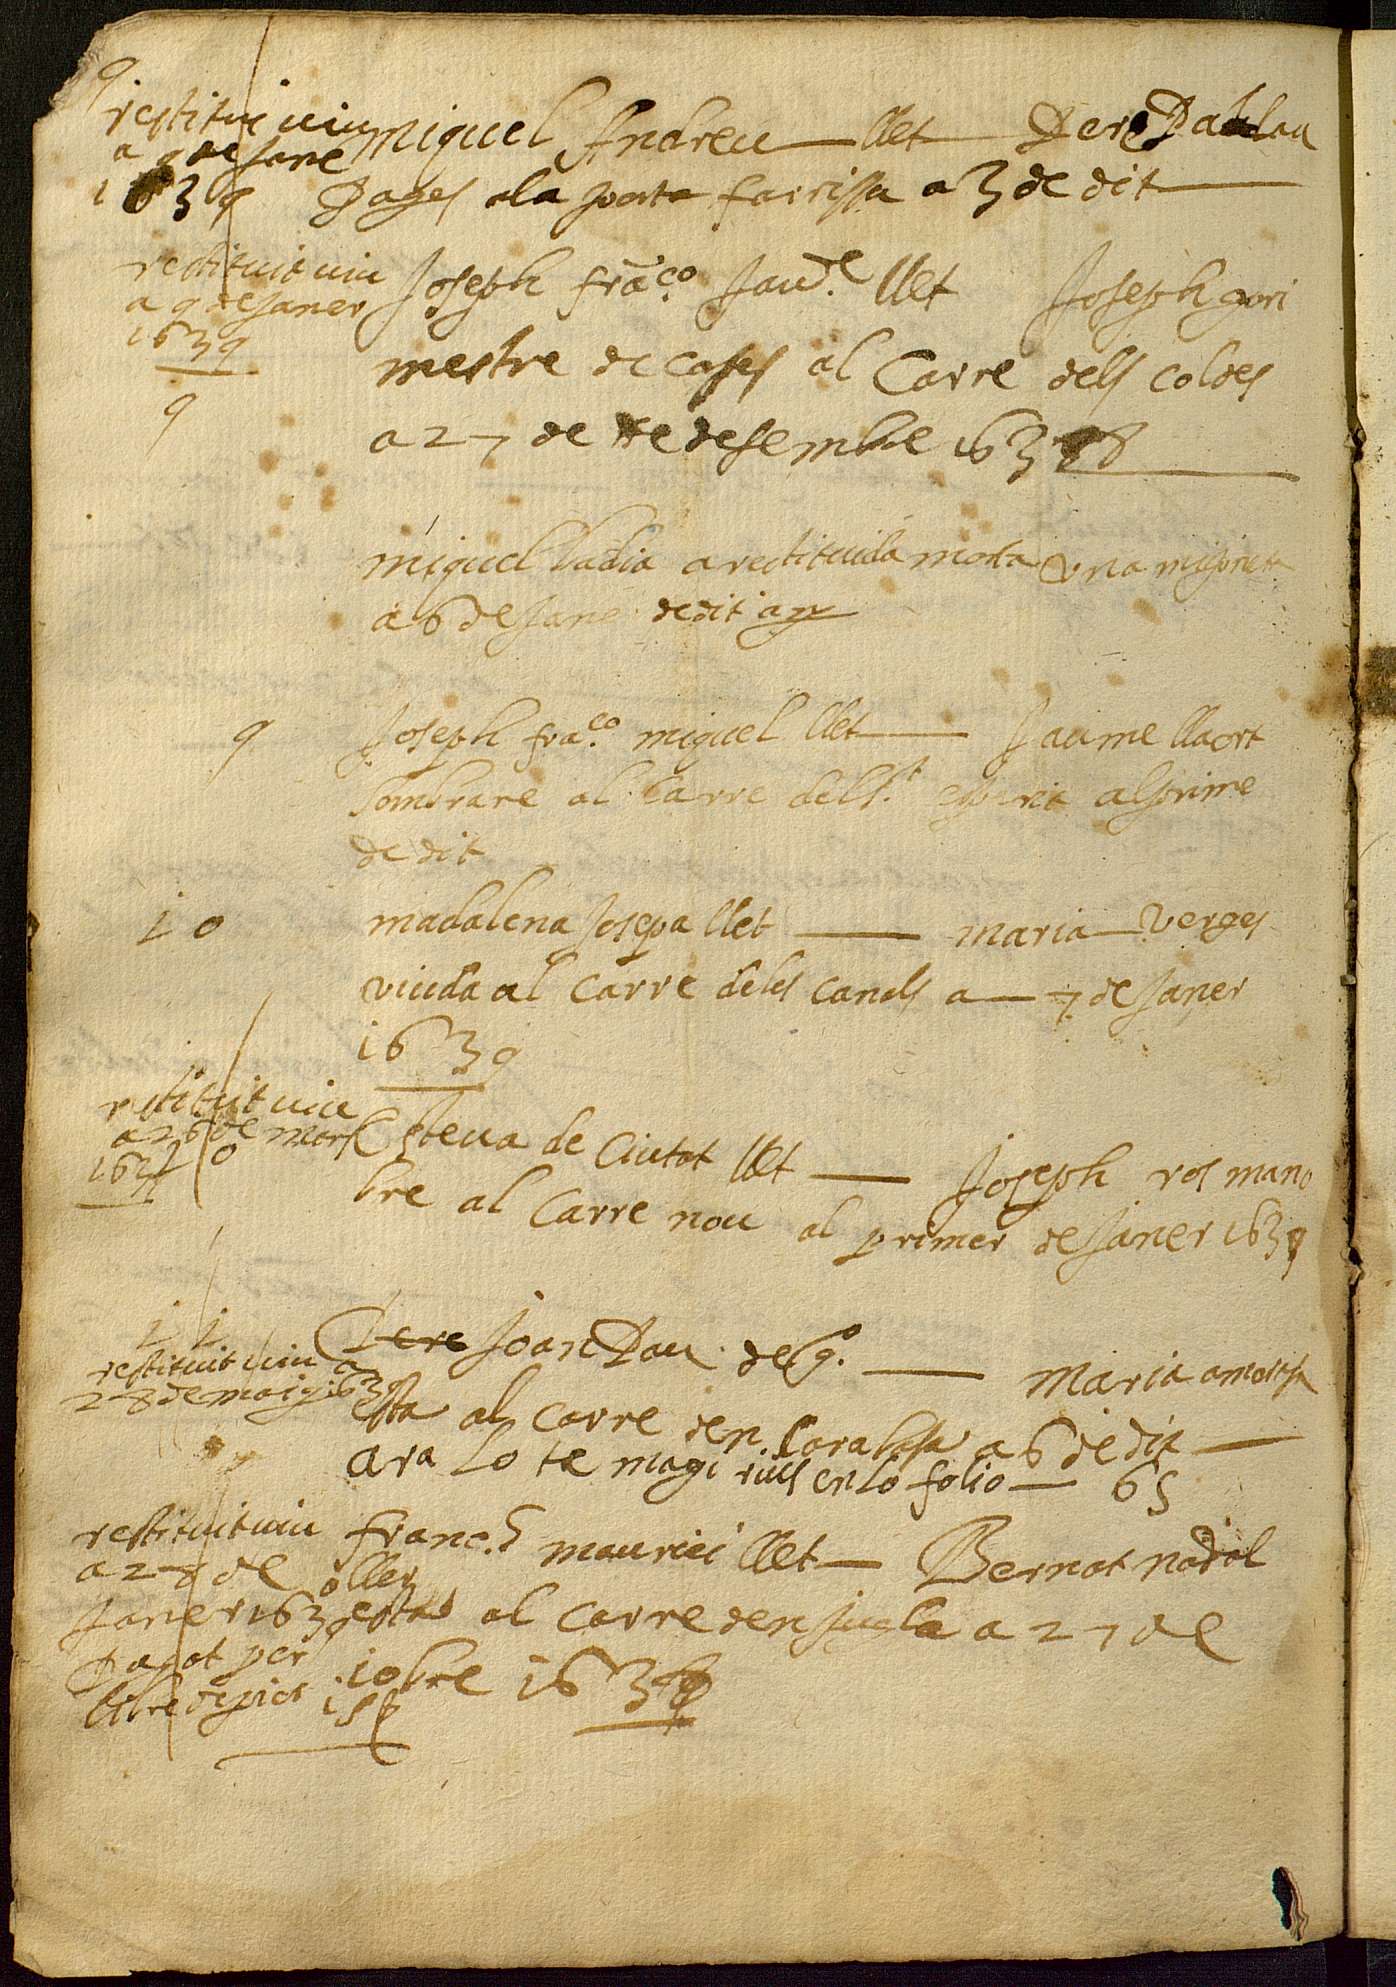 9
restituit viu
a 9 de Jane
1639
Miquel Andreu — llet — Pere Dalmau
Pages a la porta farrissa a 3 de dit
restituit viu
a 9 de Janer
1639
9
Joseph franco. Jaue. llet Joseph gori
mestre de cases al Carre dels coldes
a 27 de desembre 1638
miquel badia a restituida morta una
a 6 de Jane de dit any
9
Joseph fraco. miquel llet — Jaume llaort
sombrare al Carre del st. esperit al prime
de dit
10
madalena Josepa llet — maria verges
viuda al Carre deles canals a — 7 de Janer
1639
restituit viu
a 26 de Mars
10
Esteva de Ciutat llet — Joseph ros mano
bre al Carre nou al primer de Janer 1639
11
restituit viu a
28 de maig 1639
Pere Joan Pau desg.º — Maria
esta al carre den Carabassa a 6 de dit —
ara Lo te magi rius en lo folio — 65
restituit viu
a 28 de
Janer 1639
Pagat per
llibre
franc.s maurici llet — Bernat nadal
oller
esta al carre den Jucla a 27 de
10bre 1638